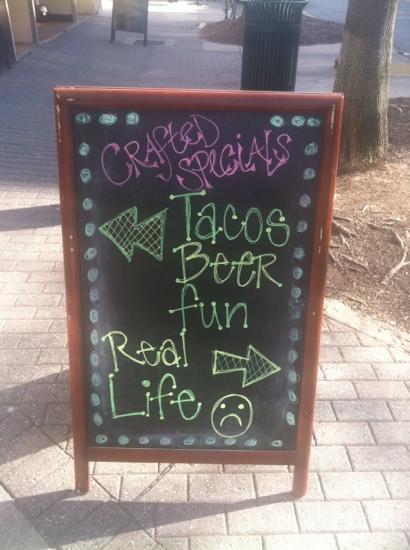 Crafted
Specials
Tacos
Beer
fun
Real
Life